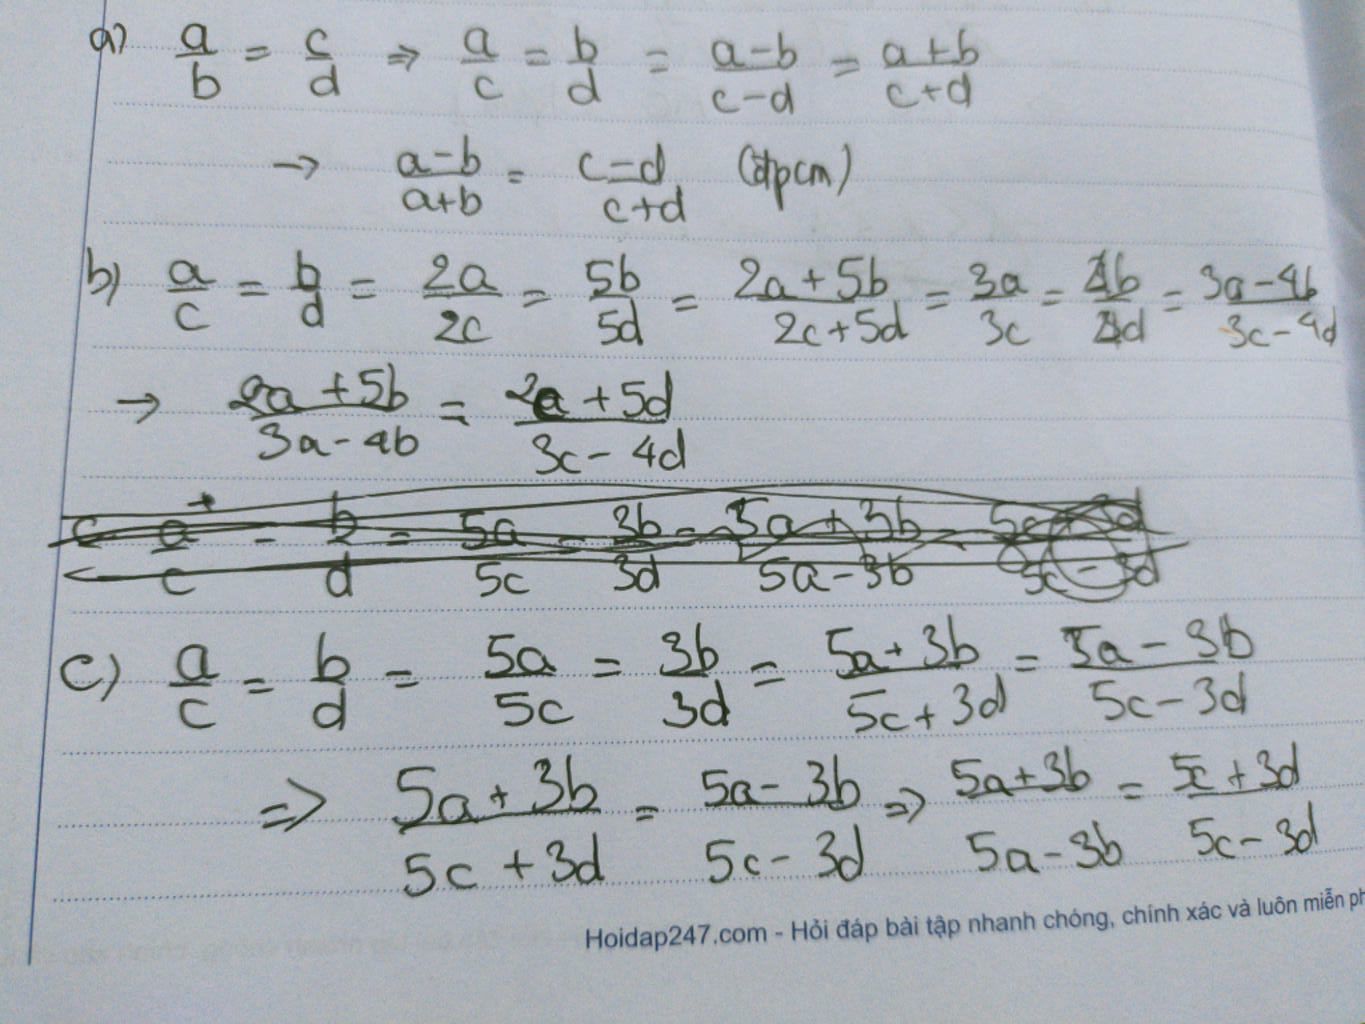 a) a/b = c/d => a/c = b/d = a-b/c-d = a+b/c+d
→ a-b/a+b = c-d/c+d (đpcm)
b) a/c = b/d = 2a/2c = 5b/5d = 2a+5b/2c+5d = 3a/3c = 4b/4d = 3a-4b/3c-4d
→ 2a+5b/3a-4b = 2c+5d/3c-4d
c a/c = b/d = 5a/5c = 3b/3d = 5a+3b/5a-3b = 5c+3d/5c-3d
c) a/c = b/d = 5a/5c = 3b/3d = 5a+3b/5c+3d = 5a-3b/5c-3d
=> 5a+3b/5c+3d = 5a-3b/5c-3d => 5a+3b/5a-3b = 5c+3d/5c-3d
Hoidap247.com - Hỏi đáp bài tập nhanh chóng, chính xác và luôn miễn ph